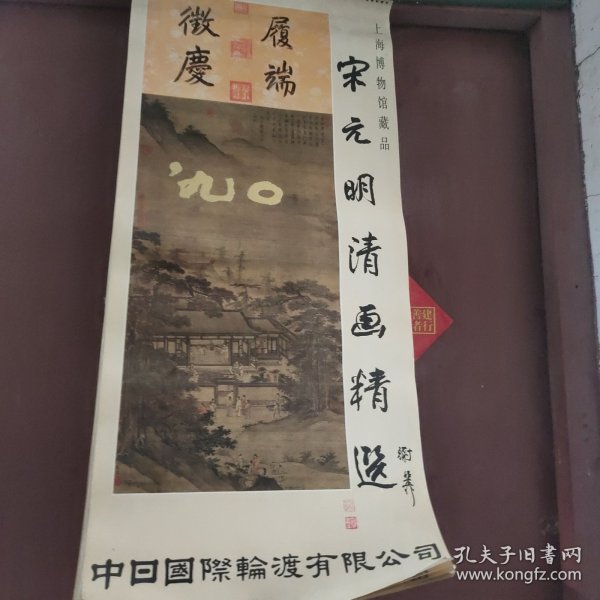 上海博物馆藏品
宋元明清画精選
履端
徵慶
'九〇
中日國際輪渡有限公司
建行
善者
孔夫子旧书网
www.kongfz.com